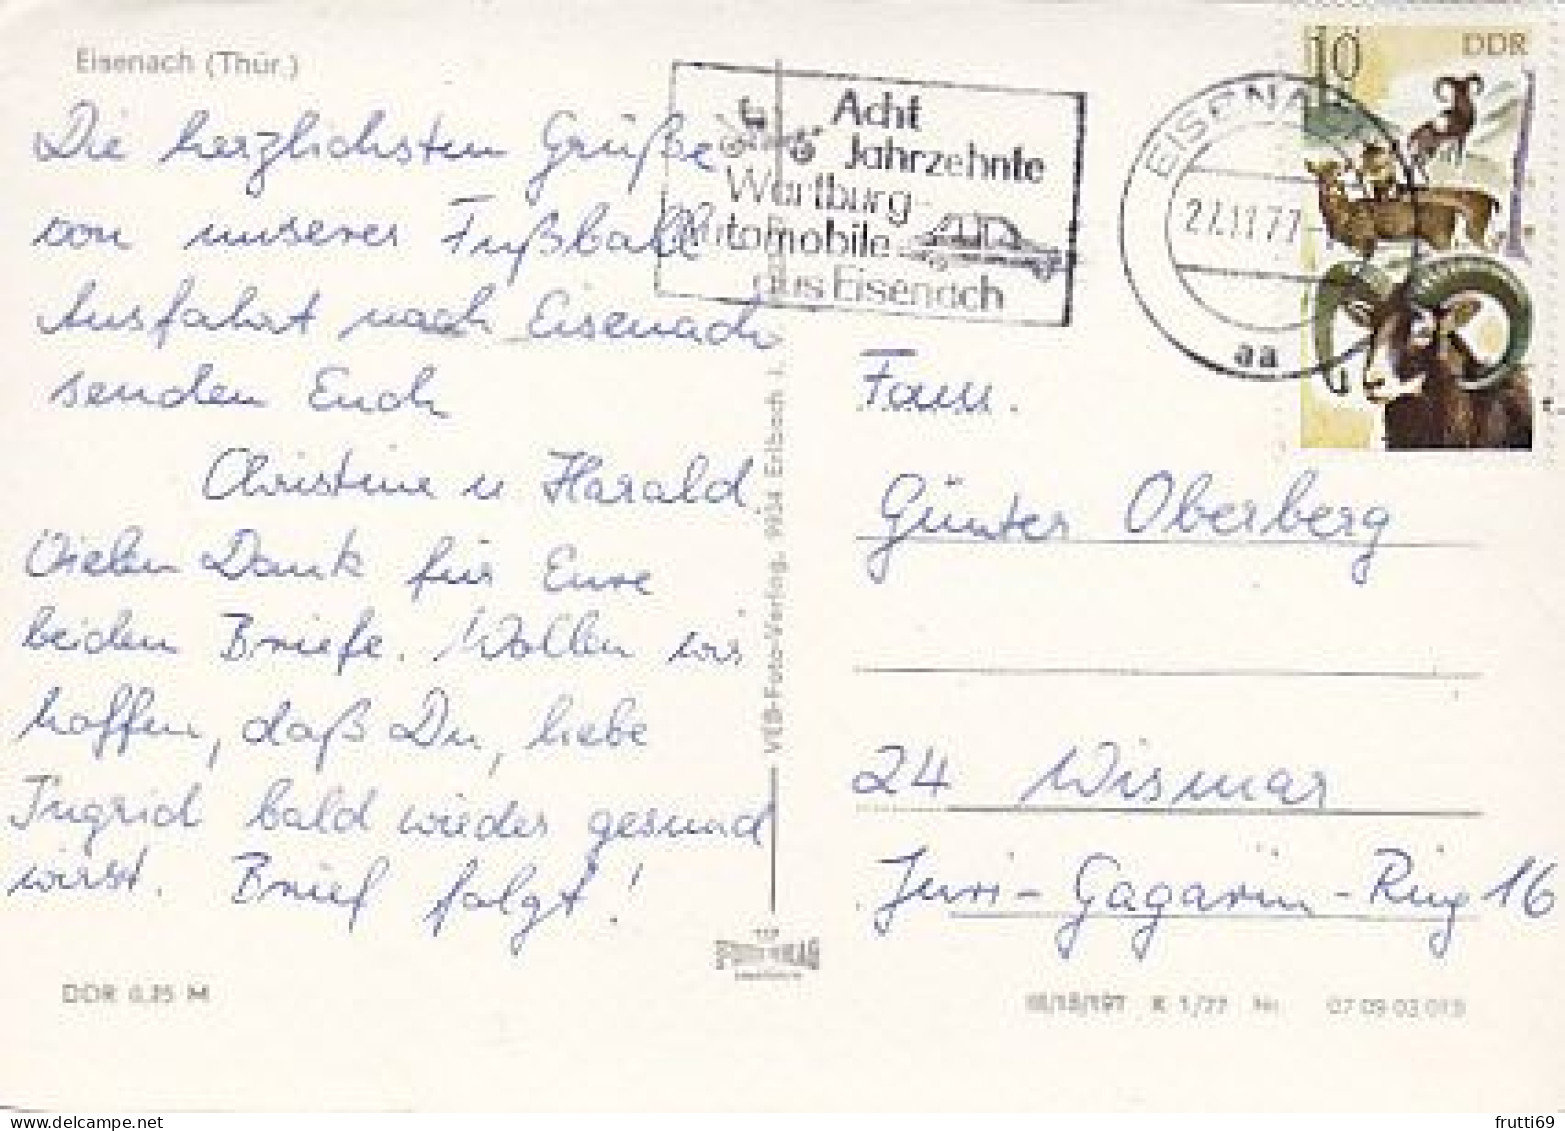 Eisenach (Thür.)
Die herzlichsten Grüße
von unserer Fußball
Ausfahrt nach Eisenach
senden Euch
Christine u Harald
Vielen Dank für Eure
beiden Briefe. Wollen wir
hoffen, daß Du, liebe
Ingrid bald wieder gesund
wirst. Brief folgt!
DDR 0,25 M
VEB-Foto-Verlag, 9934 Erlbach i.
Acht
Jahrzehnte
Wartburg-
Automobile
aus Eisenach
EISENACH
27.11.77
aa
10 DDR
Fam.
Günter Oberberg
24 Wismar
Juri-Gagarin-Ring 16
III/18/197 K 1/77 Nr. 07 09 03 013
frutti69